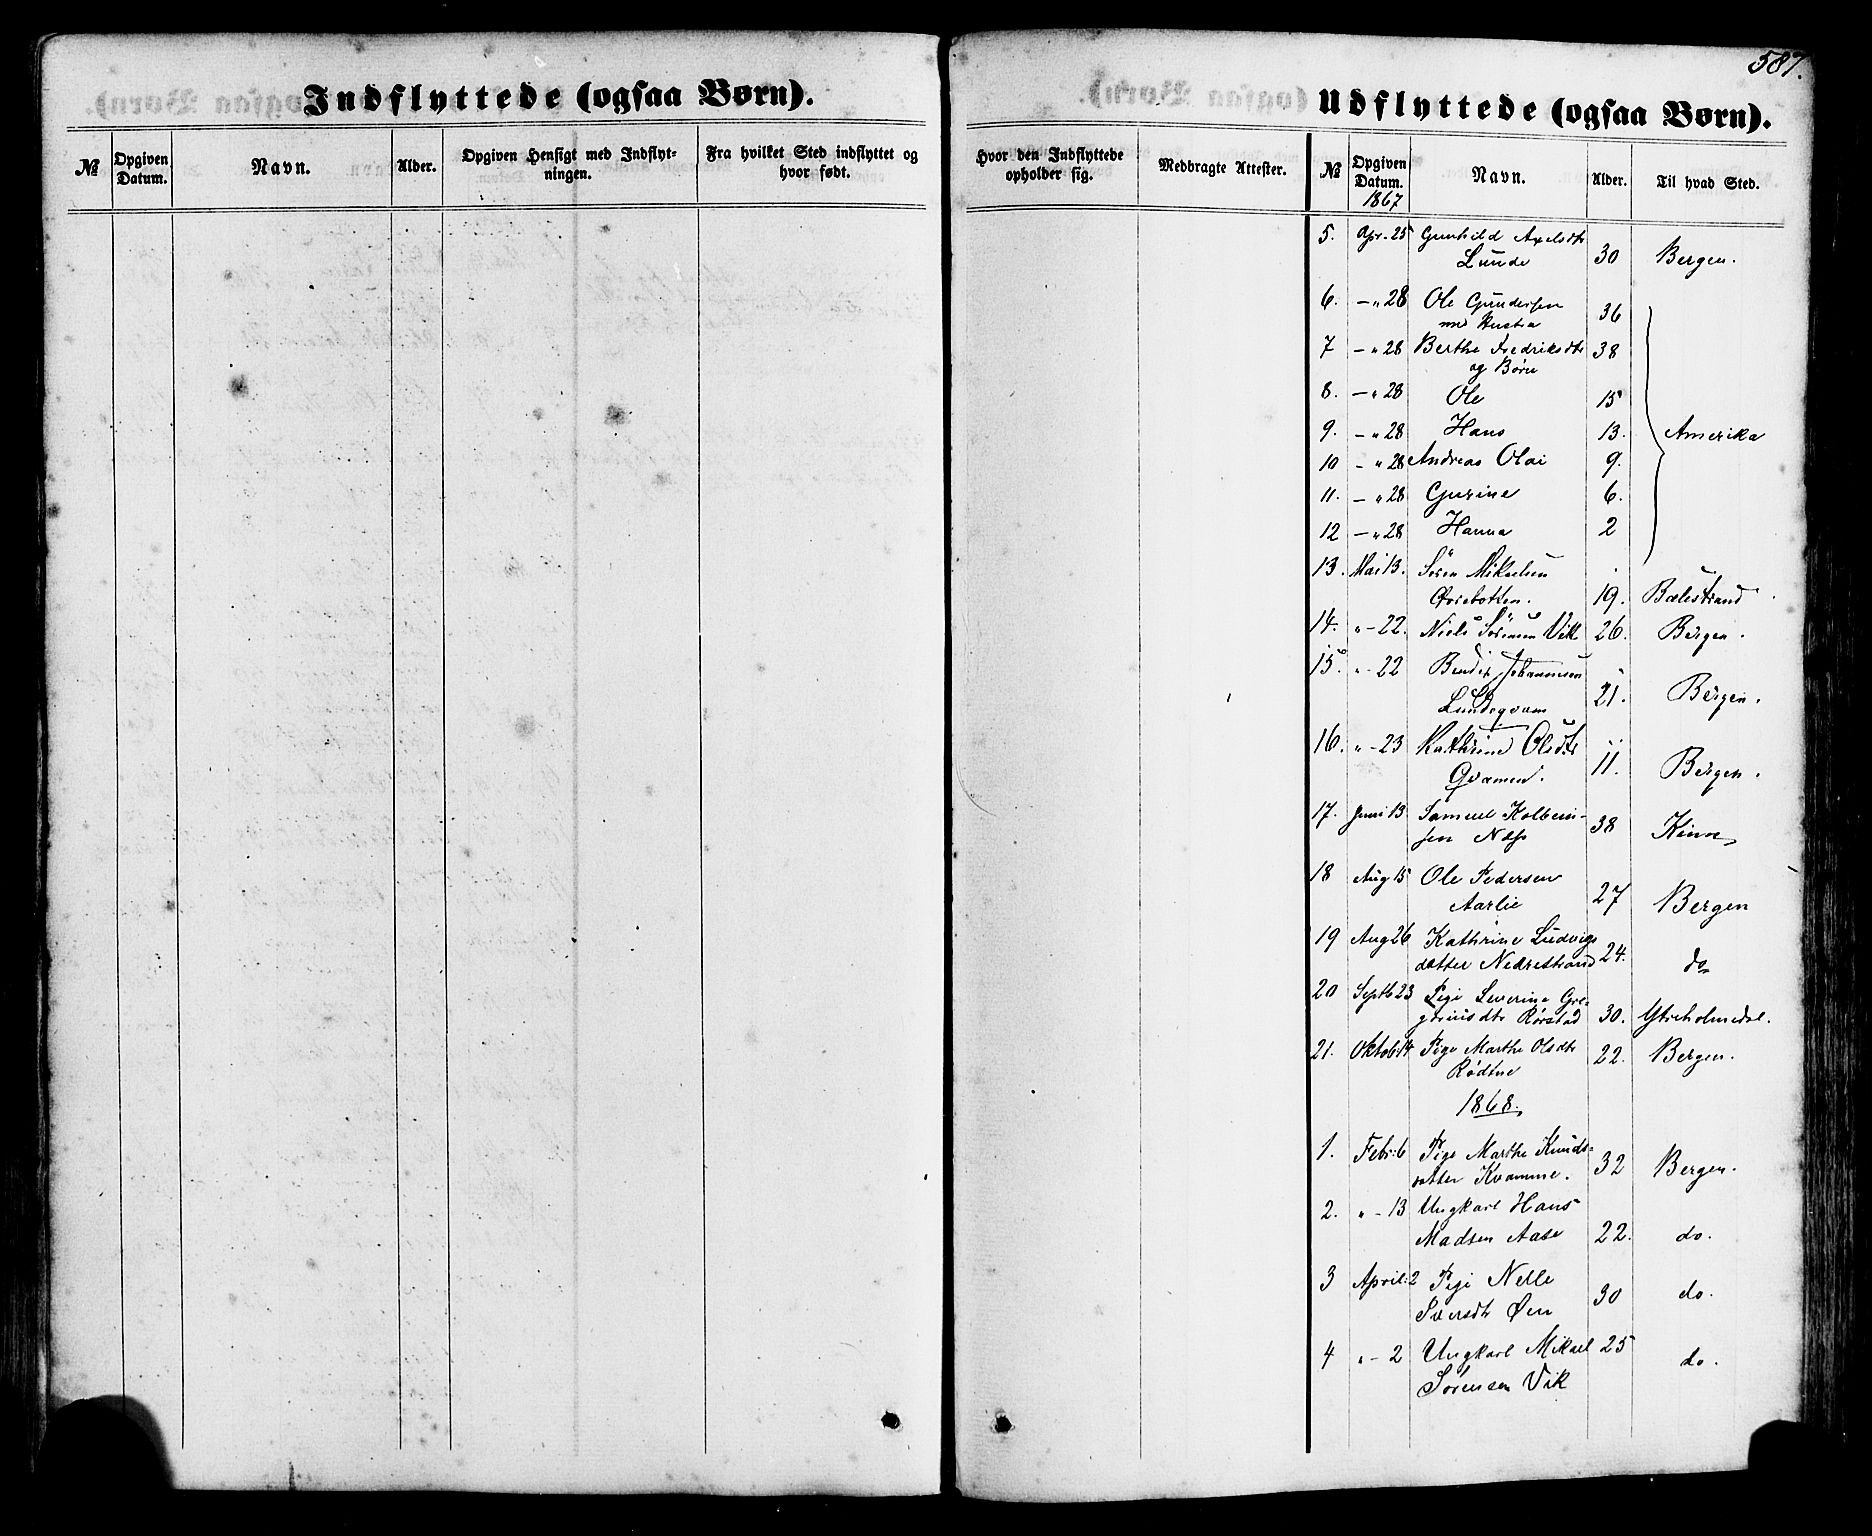 587.
Indflyttede (ogsaa Børn).
№ Opgiven Datum. Navn. Alder. Opgiven Hensigt med Indflyt-
ningen. Fra hvilket Sted indflyttet og
hvor født.
Udflyttede (ogsaa Børn).
Hvor den Indflyttede
opholder sig. Medbragte Attester. № Opgiven Datum. Navn. Alder. Til hvad Sted.
1867
5. Apr. 25 Gunhild Axelsdtr
Lunde 30 Bergen.
6. — " 28 Ole Gundersen 36
med Hustru
7 — " 28 Berthe Fredriksdtr 38
og Børn
8. — " 28 Ole 15
9. — " 28 Hans 13. Amerika
10 — " 28 Andreas Olai 9.
11. — " 28 Gurine 6.
12 — " 28 Hanna 2
13. Mai 13. Søren Mikelsen
19. Balestrand
14. " - 22. Niels Sørensen Vik 26. Bergen.
15. " - 22 Bendix Johannesen
Lundeqvam 21. Bergen.
16. " - 23 Kathrine Olsdtr
Qvamen. 11. Bergen.
17. Juni 13 Samuel Kolbein-
sen Næss 38 Kinn
18 Aug 15 Ole Pedersen
Aarlie 27 Bergen
19 Aug 26 Kathrine Ludvigs
datter Nedrestrand 24. do
20 Septb 23 Pige Severine Gre-
goriusdtr Rørstad 30. Ytreholmedal.
21. Oktob 14 Pige Marthe Olsdtr 22. Bergen.
Rødtne
1868.
1. Febr: 6 Pige Marthe Knuds-
datter Kvamme. 32 Bergen.
2. " - 13 Ungkarl Hans
Madsen Aase 22. do.
3 April: 2 Pige Nelle
Siversdtr Øen 30 do.
4 " - 2 Ungkarl Mikael 25 do.
Sørensen Vik